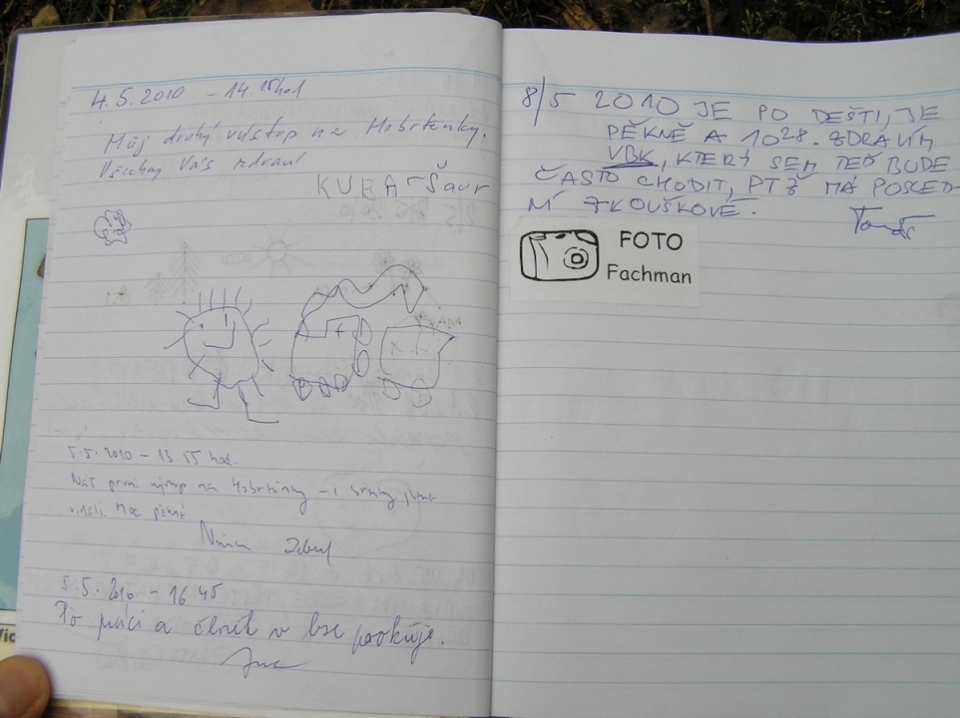 4.5.2010 - 14.15hod
Můj druhý výstup na Hobrtenky.
Všechny Vás zdraví
KUBA Šaur
5.5.2010 - 13.55 hod.
Náš první výstup na Hobrtenky - i srnky jsme
viděli. Moc pěkné
5.5.2010 - 16 45
Po práci a člověk v lese
8/5 2010 JE PO DEŠTI, JE
PĚKNĚ A 1028. ZDRAVÍM
VBK, KTERÝ SEM TEĎ BUDE
ČASTO CHODIT, PTŽ MÁ POSLED-
NÍ ZKOUŠKOVÉ.
FOTO
Fachman